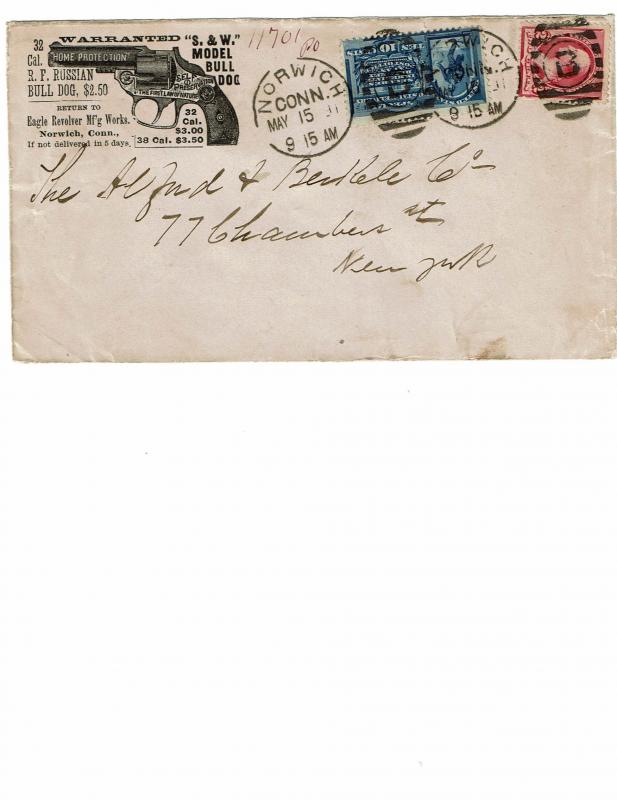 WARRANTED "S. & W."
MODEL
BULL
DOG
32
Cal.
"HOME PROTECTION"
R. F. RUSSIAN
BULL DOG, $2.50
SELF
PRESERVATION
THE FIRST LAW OF NATURE
RETURN TO
Eagle Revolver M'f'g Works.
Norwich, Conn.,
If not delivered in 5 days.
32
Cal.
$3.00
38 Cal. $3.50
11701
NORWICH
CONN.
MAY 15
9 15 AM
WICH
9 15 AM
The Alford & Berkele Co
77 Chambers st
New York